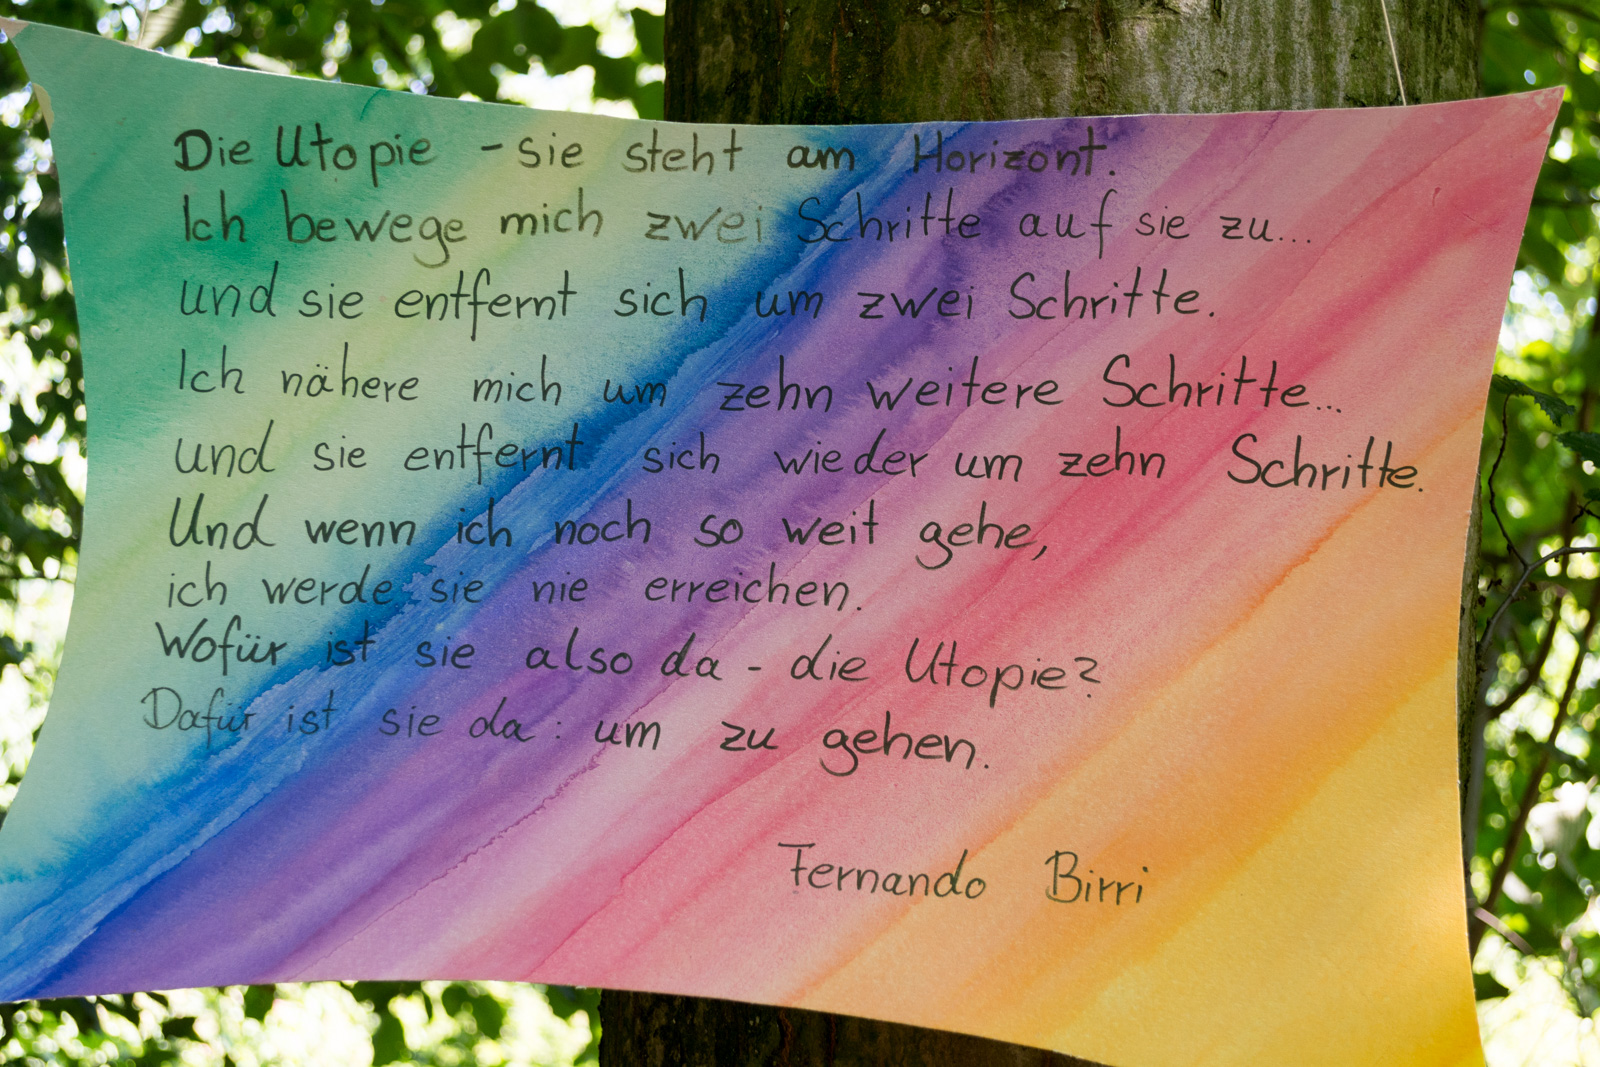 Die Utopie - sie steht am Horizont.
Ich bewege mich zwei Schritte auf sie zu...
und sie entfernt sich um zwei Schritte.
Ich nähere mich um zehn weitere Schritte...
und sie entfernt sich wieder um zehn Schritte.
Und wenn ich noch so weit gehe,
ich werde sie nie erreichen.
Wofür ist sie also da - die Utopie?
Dafür ist sie da: um zu gehen.
Fernando Birri